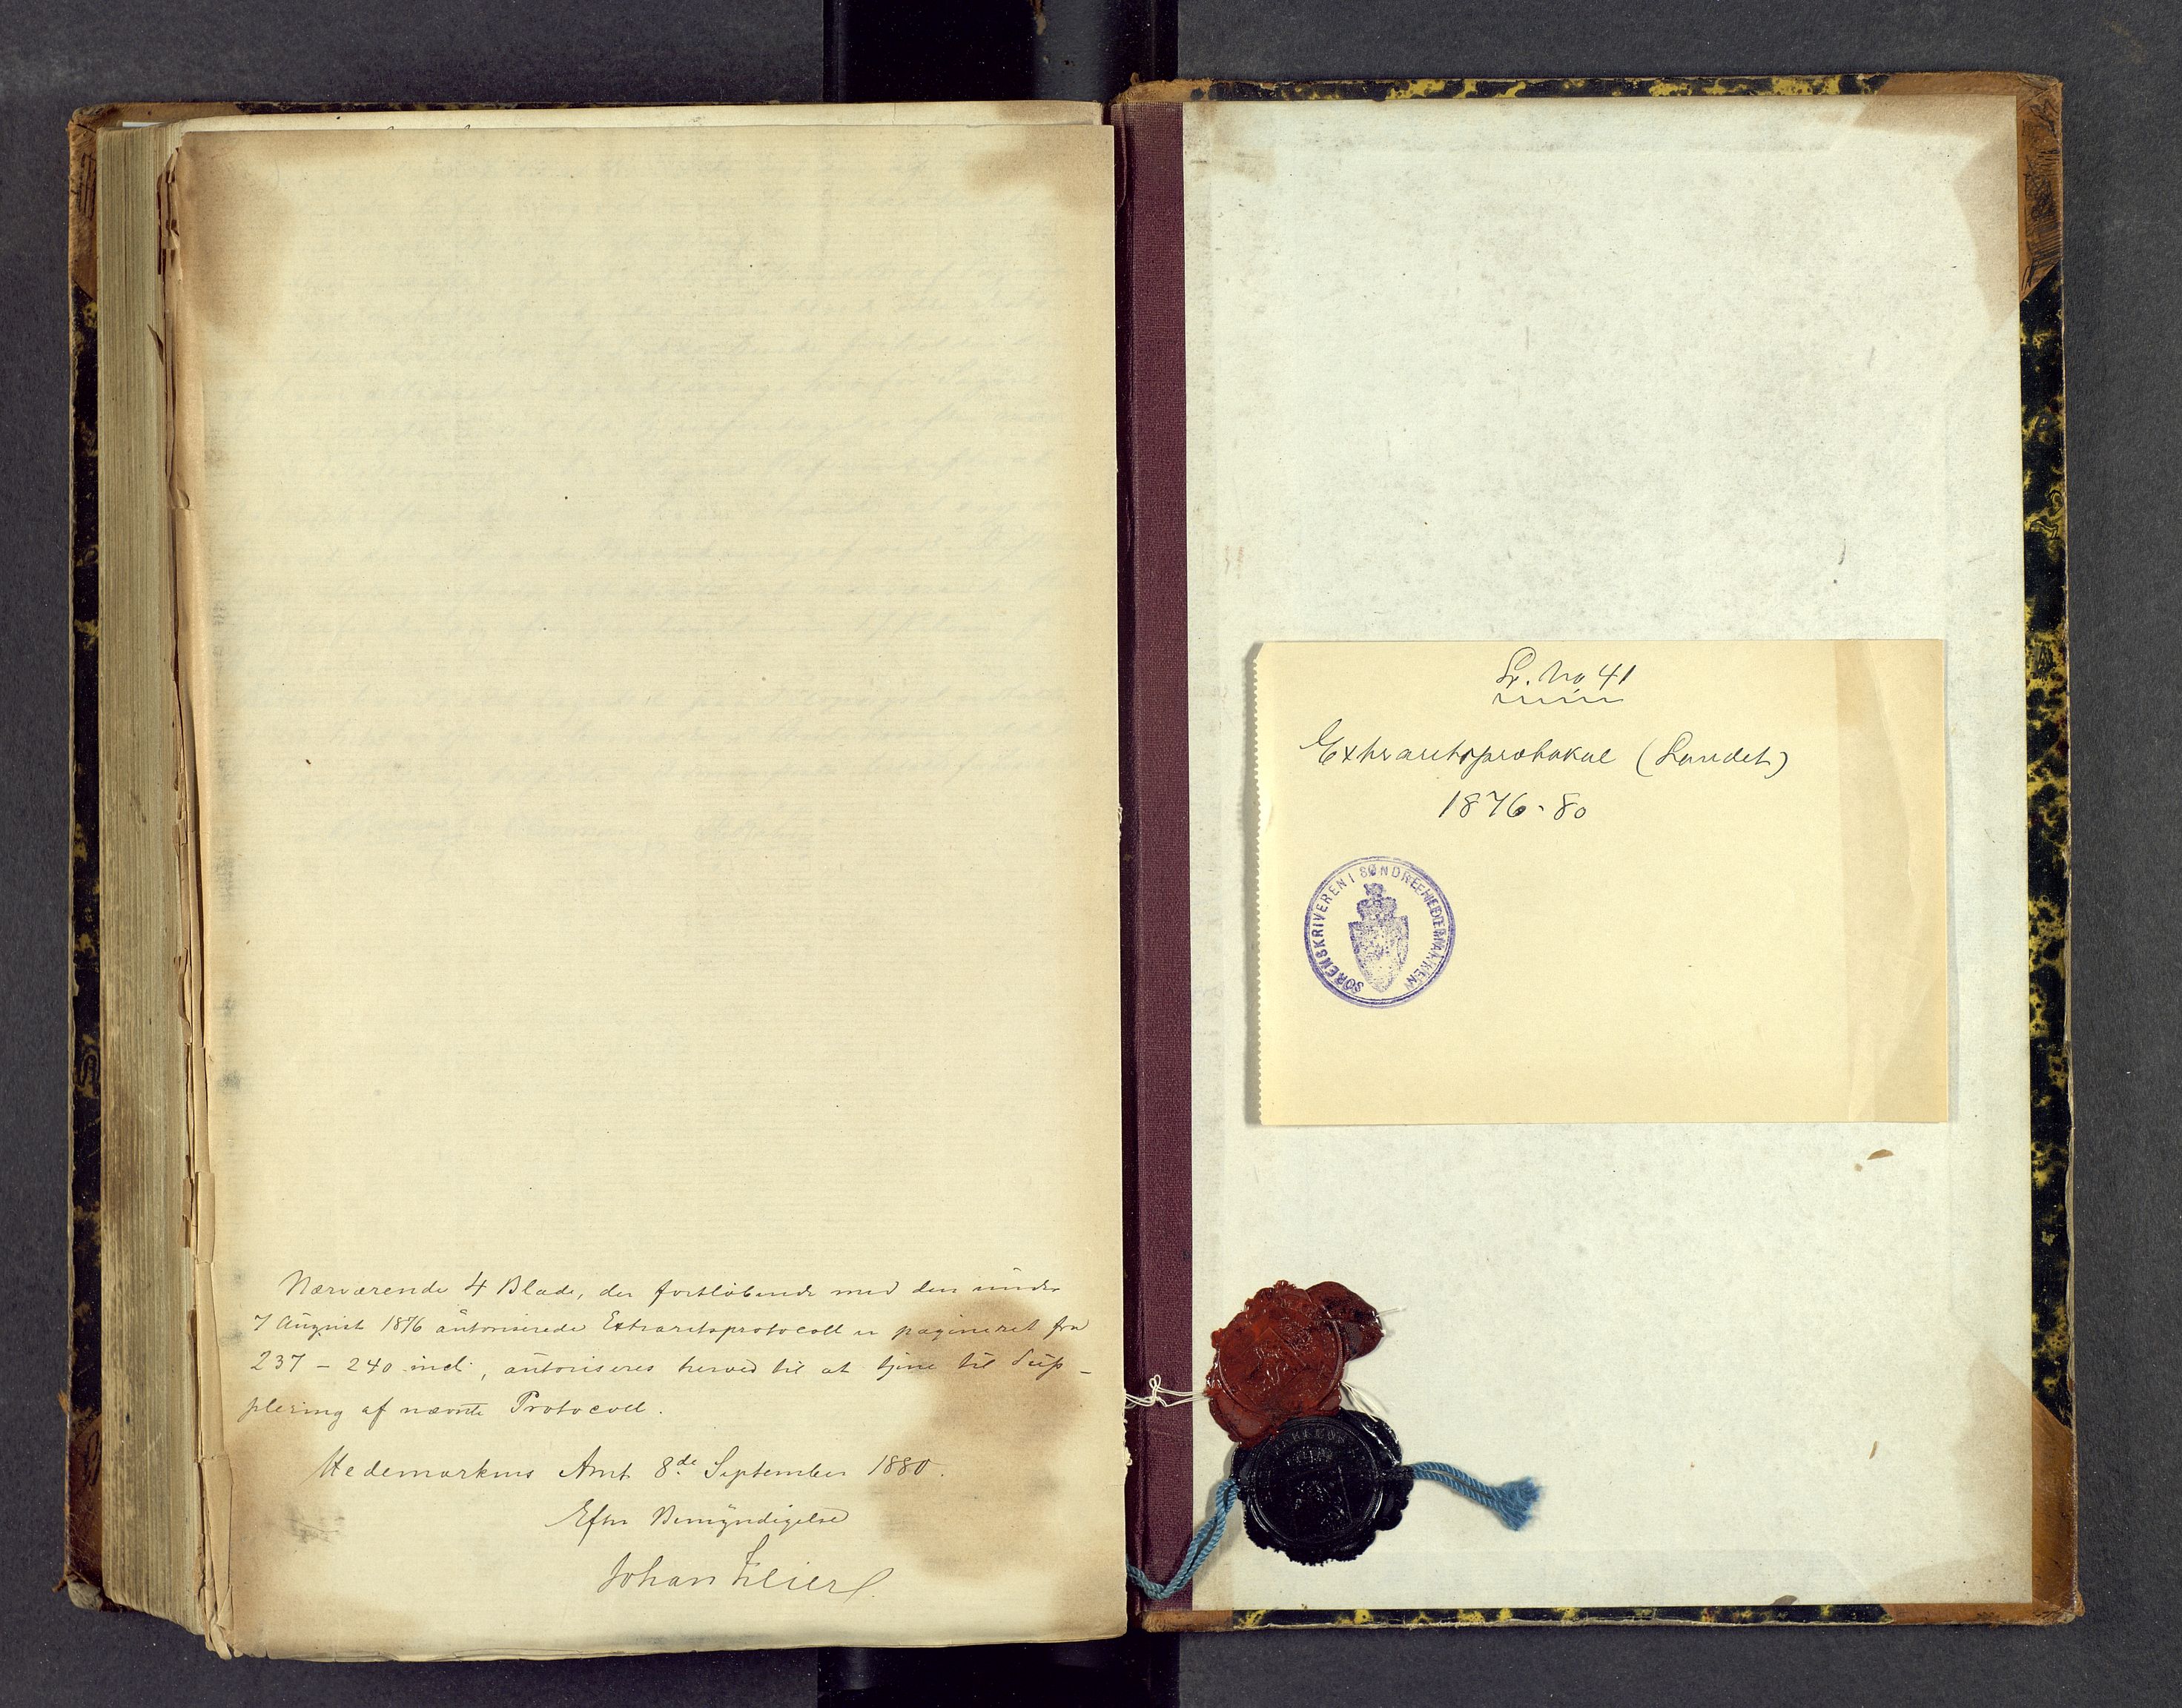 Nærværende 4 Blade, der fortløbende med den under
7 August 1876 autoriserede Extraretsprotocoll er pagineret fra
237 - 240 incl., autoriseres herved til at tjene til Sup-
plering af nævnte Protocoll.
Hedemarkens Amt 8de September 1880.
Efter Bemyndigelse
Johan
Lr. No 41
Extraretsprotokol (Landet)
1876-80
SØRENSKRIVEREN I SØNDRE HEDEMARKEN